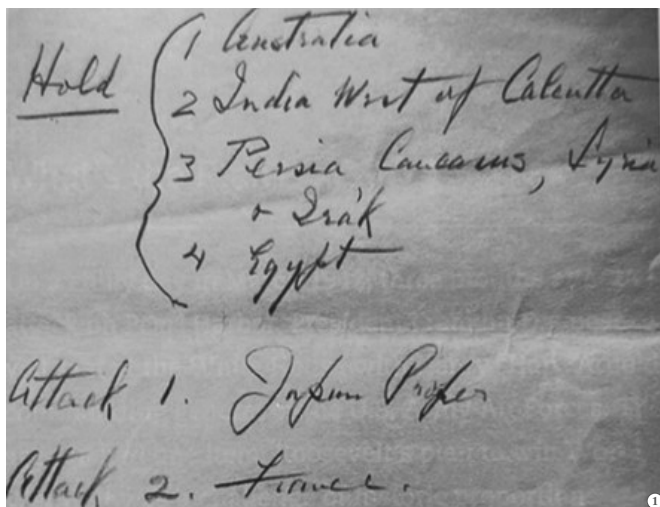 Hold
1 Australia
2 India West of Calcutta
3 Persia Caucasus, Syria
+ Irák
4 Egypt
Attack 1. Japan Proper
Attack 2. France.
1